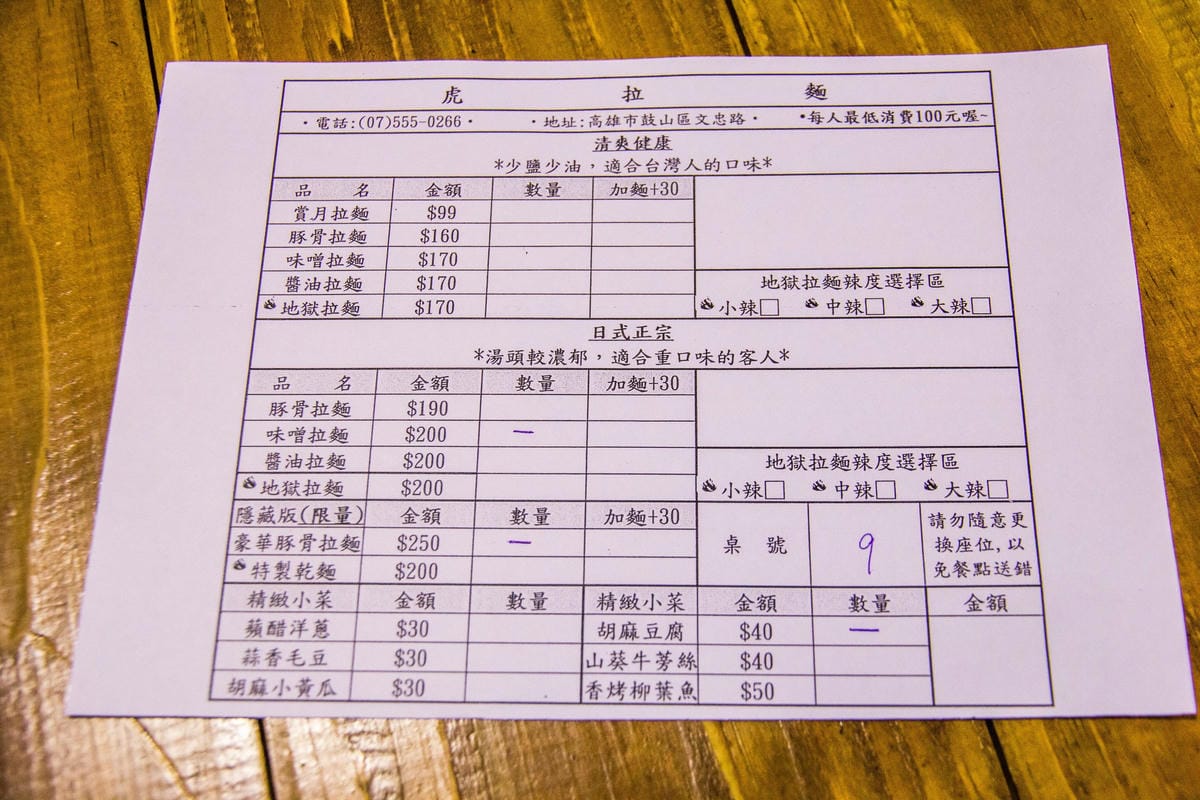 虎 拉 麵
・電話:(07)555-0266・ ・地址:高雄市鼓山區文忠路・ •每人最低消費100元喔~
清爽健康
*少鹽少油，適合台灣人的口味*
品 名 金額 數量 加麵+30
賞月拉麵 $99
豚骨拉麵 $160
味噌拉麵 $170
醬油拉麵 $170 地獄拉麵辣度選擇區
地獄拉麵 $170 小辣□ 中辣□ 大辣□
日式正宗
*湯頭較濃郁，適合重口味的客人*
品 名 金額 數量 加麵+30
豚骨拉麵 $190
味噌拉麵 $200 一
醬油拉麵 $200 地獄拉麵辣度選擇區
地獄拉麵 $200 小辣□ 中辣□ 大辣□
隱藏版(限量) 金額 數量 加麵+30 桌 號 9 請勿隨意更
豪華豚骨拉麵 $250 一 換座位,以
特製乾麵 $200 免餐點送錯
精緻小菜 金額 數量 精緻小菜 金額 數量 金額
蘋醋洋蔥 $30 胡麻豆腐 $40 一
蒜香毛豆 $30 山葵牛蒡絲 $40
胡麻小黃瓜 $30 香烤柳葉魚 $50